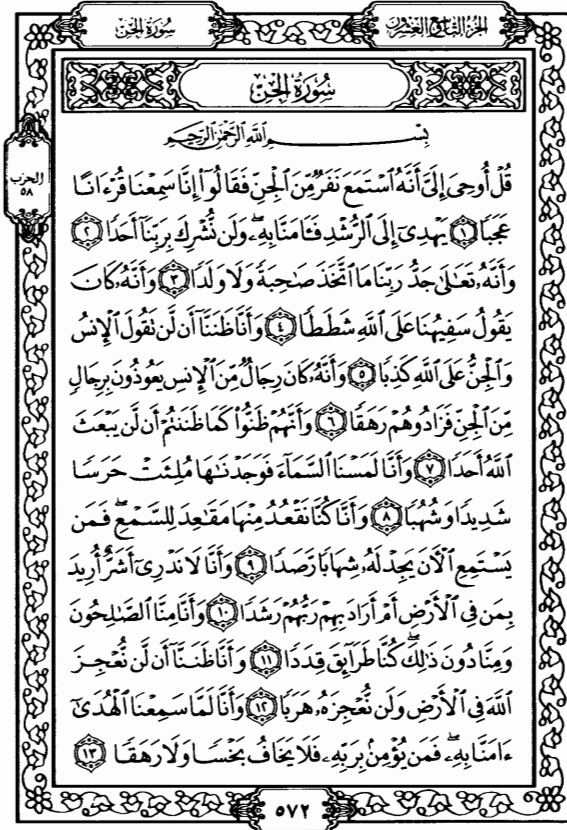 الجزء التاسع والعشرون
سورة الجن
سُورَةُ الجِنِّ
الحزب
٥٨
بِسْمِ اللَّهِ الرَّحْمَٰنِ الرَّحِيمِ
قُلْ أُوحِيَ إِلَيَّ أَنَّهُ ٱسْتَمَعَ نَفَرٌ مِّنَ ٱلْجِنِّ فَقَالُوٓا۟ إِنَّا سَمِعْنَا قُرْءَانًا
عَجَبًا ١ يَهْدِىٓ إِلَى ٱلرُّشْدِ فَـَٔامَنَّا بِهِۦ ۖ وَلَن نُّشْرِكَ بِرَبِّنَآ أَحَدًا ٢
وَأَنَّهُۥ تَعَٰلَىٰ جَدُّ رَبِّنَا مَا ٱتَّخَذَ صَٰحِبَةً وَلَا وَلَدًا ٣ وَأَنَّهُۥ كَانَ
يَقُولُ سَفِيهُنَا عَلَى ٱللَّهِ شَطَطًا ٤ وَأَنَّا ظَنَنَّآ أَن لَّن تَقُولَ ٱلْإِنسُ
وَٱلْجِنُّ عَلَى ٱللَّهِ كَذِبًا ٥ وَأَنَّهُۥ كَانَ رِجَالٌ مِّنَ ٱلْإِنسِ يَعُوذُونَ بِرِجَالٍ
مِّنَ ٱلْجِنِّ فَزَادُوهُمْ رَهَقًا ٦ وَأَنَّهُمْ ظَنُّوا۟ كَمَا ظَنَنتُمْ أَن لَّن يَبْعَثَ
ٱللَّهُ أَحَدًا ٧ وَأَنَّا لَمَسْنَا ٱلسَّمَآءَ فَوَجَدْنَٰهَا مُلِئَتْ حَرَسًا
شَدِيدًا وَشُهُبًا ٨ وَأَنَّا كُنَّا نَقْعُدُ مِنْهَا مَقَٰعِدَ لِلسَّمْعِ ۖ فَمَن
يَسْتَمِعِ ٱلْـَٔانَ يَجِدْ لَهُۥ شِهَابًا رَّصَدًا ٩ وَأَنَّا لَا نَدْرِىٓ أَشَرٌّ أُرِيدَ
بِمَن فِى ٱلْأَرْضِ أَمْ أَرَادَ بِهِمْ رَبُّهُمْ رَشَدًا ١٠ وَأَنَّا مِنَّا ٱلصَّٰلِحُونَ
وَمِنَّا دُونَ ذَٰلِكَ ۖ كُنَّا طَرَآئِقَ قِدَدًا ١١ وَأَنَّا ظَنَنَّآ أَن لَّن نُّعْجِزَ
ٱللَّهَ فِى ٱلْأَرْضِ وَلَن نُّعْجِزَهُۥ هَرَبًا ١٢ وَأَنَّا لَمَّا سَمِعْنَا ٱلْهُدَىٰٓ
ءَامَنَّا بِهِۦ ۖ فَمَن يُؤْمِنۢ بِرَبِّهِۦ فَلَا يَخَافُ بَخْسًا وَلَا رَهَقًا ١٣
٥٧٢